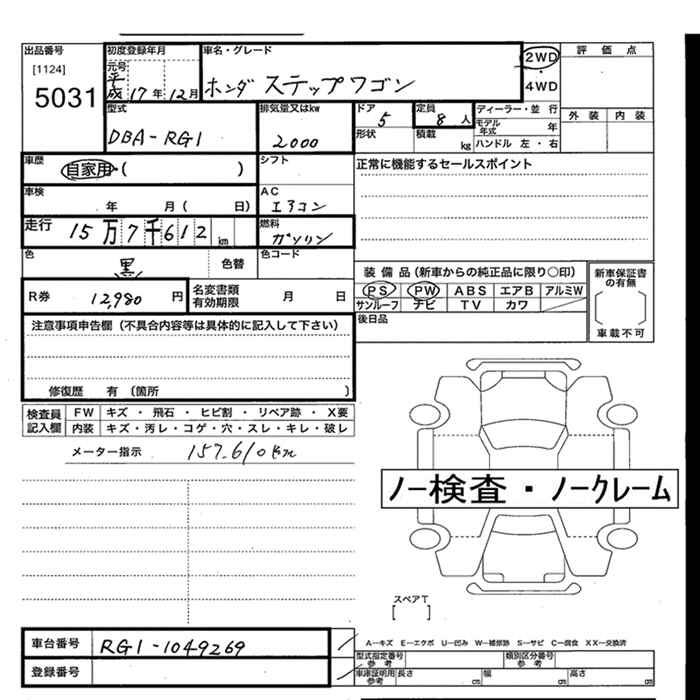 出品番号 初度登録年月 車名・グレード
[1124] 元号 2WD 評価点
5031 平成 17年12月 ホンダ ステップワゴン 4WD
外装 内装
型式 排気量又はkw ドア 定員 ディーラー・並行
DBA-RG1 2000 5 8人 モデル年式 年
形状 積載 kg ハンドル 左・右
車歴 自家用・( ) シフト 正常に機能するセールスポイント
車検 年 月( 日) AC エアコン
走行 15万7千612km 燃料 ガソリン
色 黒 色替 色コード
装備品(新車からの純正品に限り○印) 新車保証書の有無
R券 12,980円 名変書類有効期限 月 日 PS PW ABS エアB アルミW
サンルーフ ナビ TV カワ 車載不可
注意事項申告欄(不具合内容等は具体的に記入して下さい) 後日品
修復歴 有 (箇所 )
検査員記入欄 FW キズ・飛石・ヒビ割・リペア跡・X要
内装 キズ・汚レ・コゲ・穴・スレ・キレ・破レ
メーター指示 157,610km
ノー検査・ノークレーム
スペアT
[ ]
車台番号 RG1-1049269 A-キズ E-エクボ U-凹み W-補修跡 S-サビ C-腐食 XX-交換済
型式指定番号 参考 類別区分番号 参考
登録番号 車庫証明用 参考 長さ cm 幅 cm 高さ cm